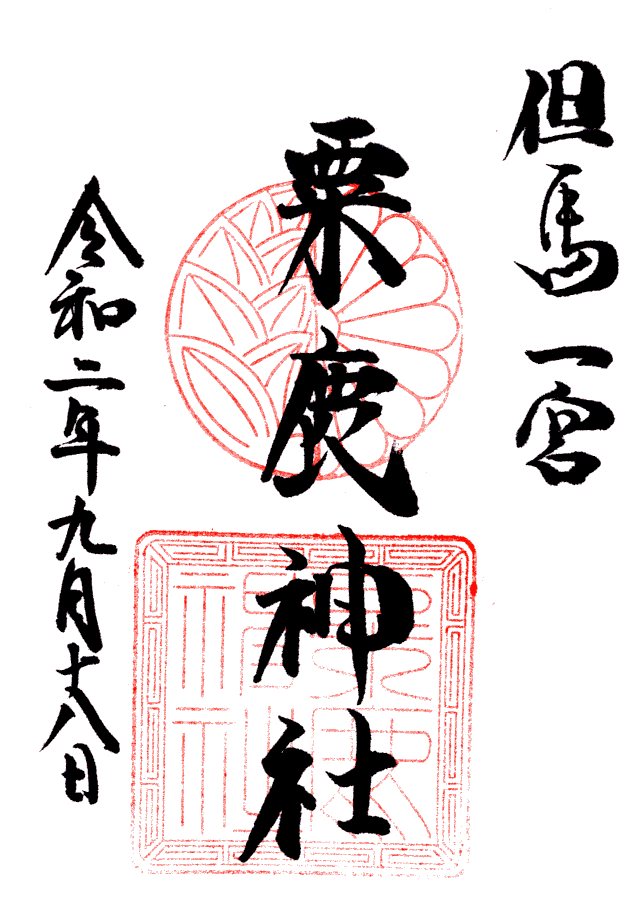 但馬一宮
粟鹿神社
令和二年九月十八日